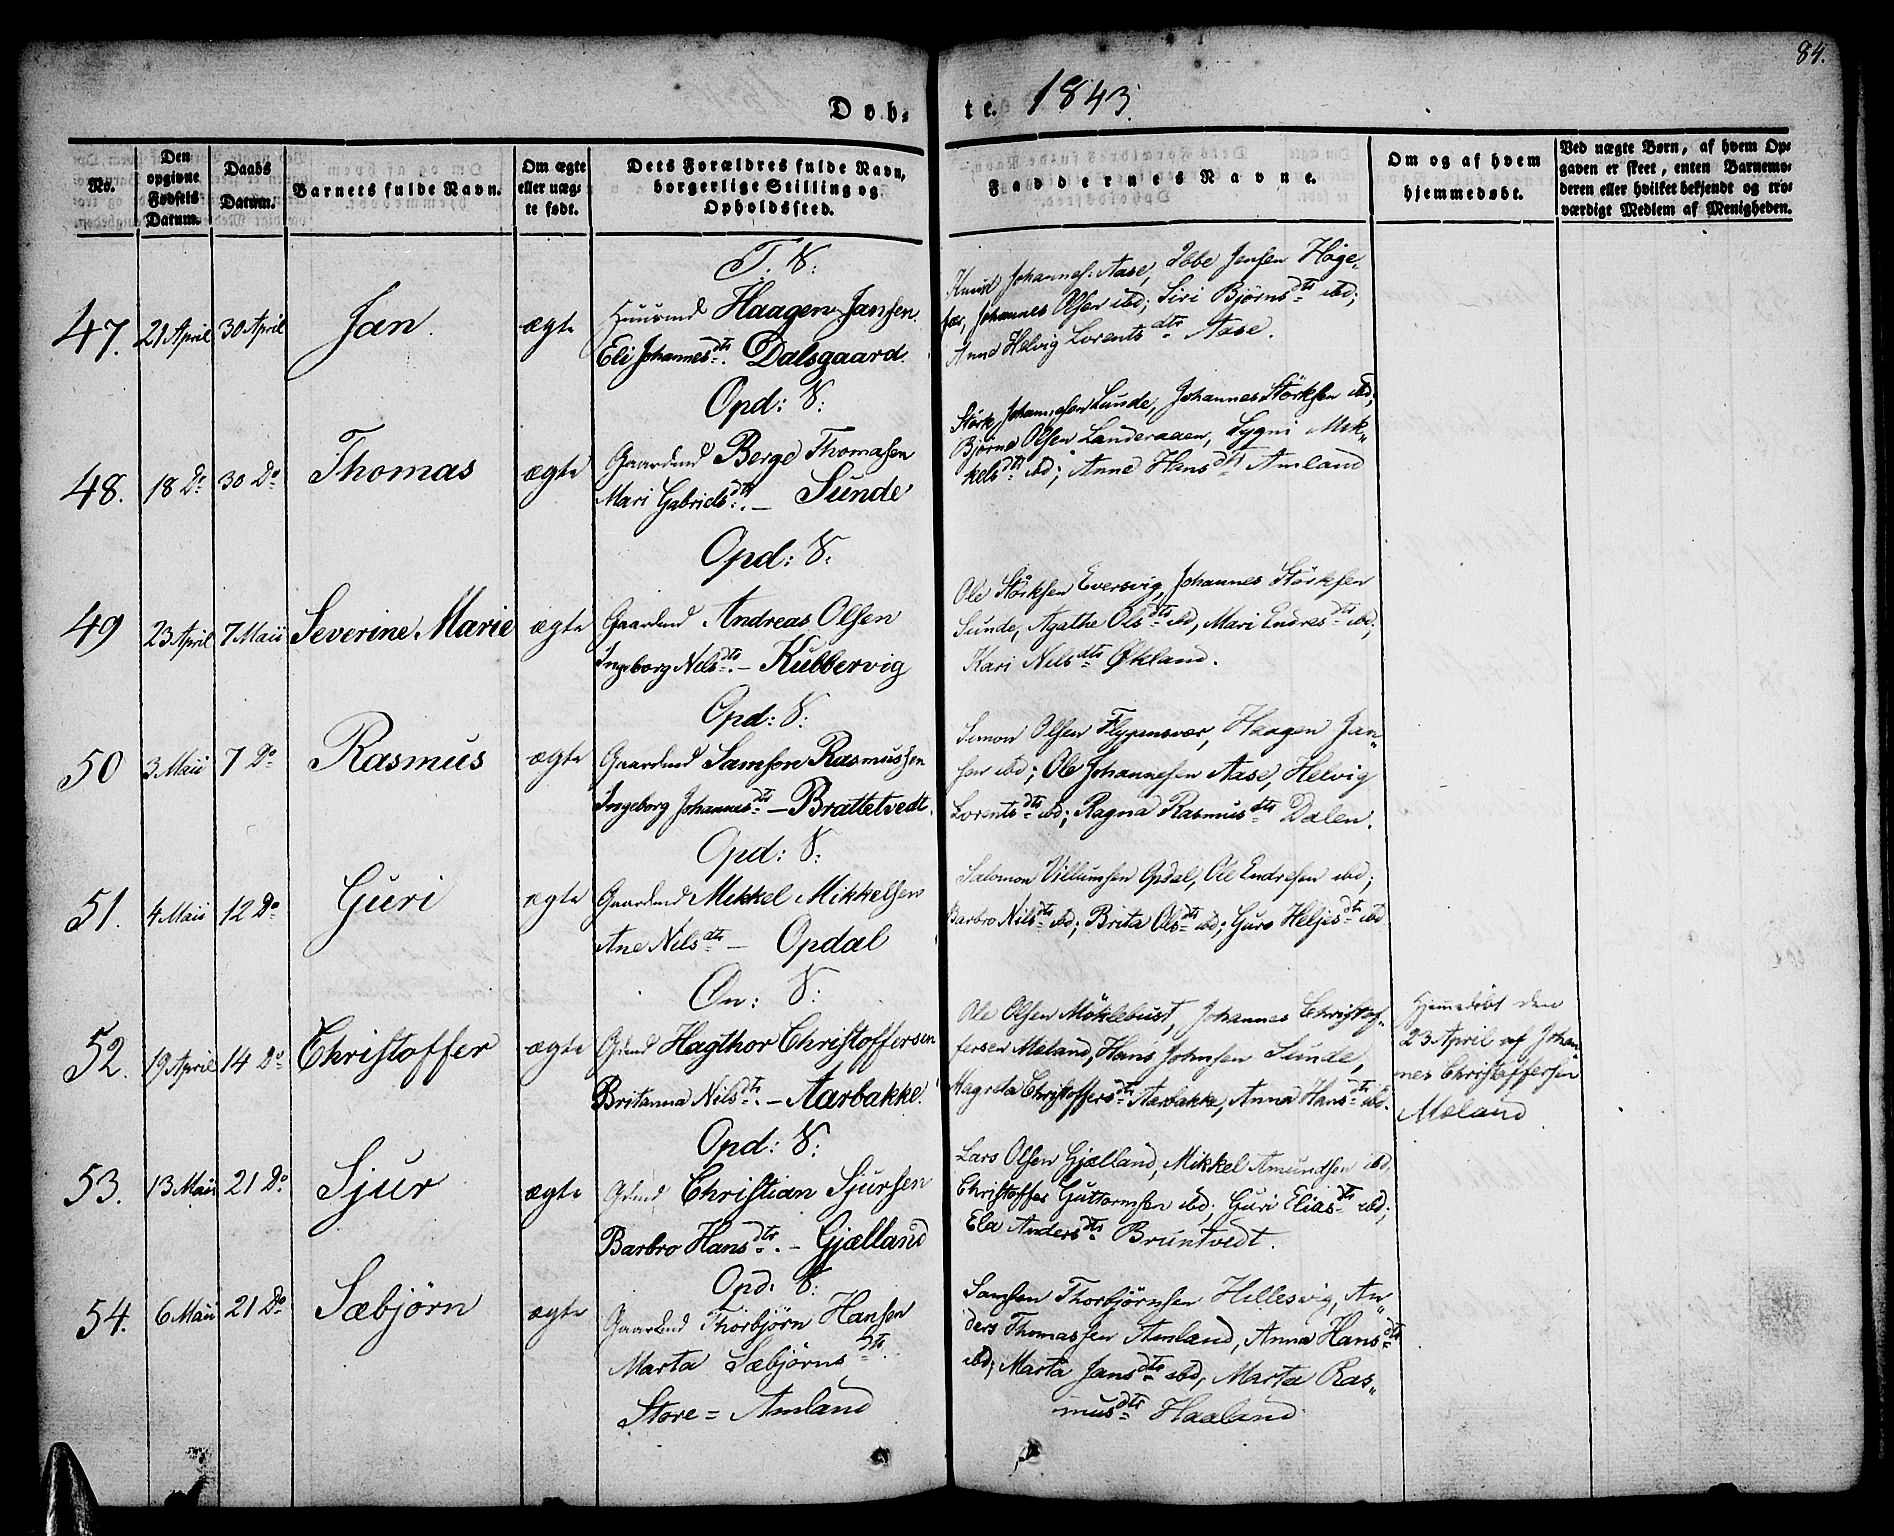 84.
Døb-
te. 1843.
No.
Den opgivne Fødsels Datum.
Daabs Datum.
Barnets fulde Navn.
Om ægte eller uæg- te født.
Dets Forældres fulde Navn, borgerlige Stilling og Opholdssted.
Faddernes Navne.
Om og af hvem hjemmedøbt.
Ved uægte Børn, af hvem Op- gaven er skeet, enten Barnemo- deren eller hvilket bekjendt og tro- værdigt Medlem af Menigheden.
47. 21 April 30 April Jan. ægte
T. S:
Huusmd Haagen Jansen.
Eli Johannesdtr. Dalsgaard.
Knud Johannes: Aase, Ebbe Jensen Høge-
fær, Johannes Olsen ibd; Siri Bjørnsdtr ibd;
Anna Helvig Lorentsdtr Aase.
48. 18 Do 30 Do Thomas ægte
Opd: S:
Gaardmd Berge Thomasen
Mari Gabrielsdtr. – Sunde
Størk Johannesen Sunde, Johannes Størksen ibd;
Bjørne Olsen Landeraaen, Sygni Mik-
kelsdtr ibd; Anne Hansdtr Amland
49 23 April 7 Maii Severine Marie ægte
Opd: S:
Gaardmd Andreas Olsen
Ingeborg Nilsdtr. – Kubbervig
Ole Størksen Eversvig, Johannes Størksen
Sunde, Agathe Olsdtr ibd, Mari Endresdtr ibd;
Kari Nilsdtr Økland.
50 3 Maii 7 Do Rasmus ægte
Opd: S:
Gaardmd Samson Rasmussen
Ingeborg Johannesdtr – Brattetvedt.
Simon Olsen Flypensvær, Haagen Jan-
sen ibd; Ole Johannesen Aase, Helvig
Lorentsdtr ibd; Ragna Rasmusdtr Dalen.
51. 4 Maii 12 Do Guri ægte
Opd: S:
Gaardmd Mikkel Mikkelsen
Ane Nilsdtr – Opdal
Salomon Villumsen Opdal, Ole Endresen ibd;
Barbro Nilsdtr ibd; Brita Olsdtr ibd; Guro Heljesdtr ibd
52. 19 April 14 Do Christoffer ægte
Øn: S:
Gdmd Hagthor Christoffersen
Britanna Nilsdtr. – Aarbakke.
Ole Olsen Møklebust, Johannes Christof-
fersen Mæland, Hans Johnsen Sunde,
Magreta Christoffersdtr Aarbakke, Anna Hansdtr ibd.
Hjemedøbt den
23 April af Johan-
nes Christoffersen
Mæland
53. 13 Maii 21 Do Sjur ægte
Opd: S:
Gdmd Christian Sjursen
Barbro Hansdtr. – Gjælland
Lars Olsen Gjælland, Mikkel Amundsen ibd,
Christoffer Guttormsen ibd; Guri Eliasdtr ibd;
Ela Andersdtr Bruntvedt.
54. 6 Maii 21 Do Sæbjørn ægte
Opd. S:
Gaardmd Thorbjørn Hansen
Marta Sæbjørnsdtr
Store = Amland
Samson Thorbjørnsen Hillesvig, An-
ders Thomassen Amland, Anna Hansdtr
ibd; Marta Jansdtr ibd, Marta Ras-
musdtr Haaland